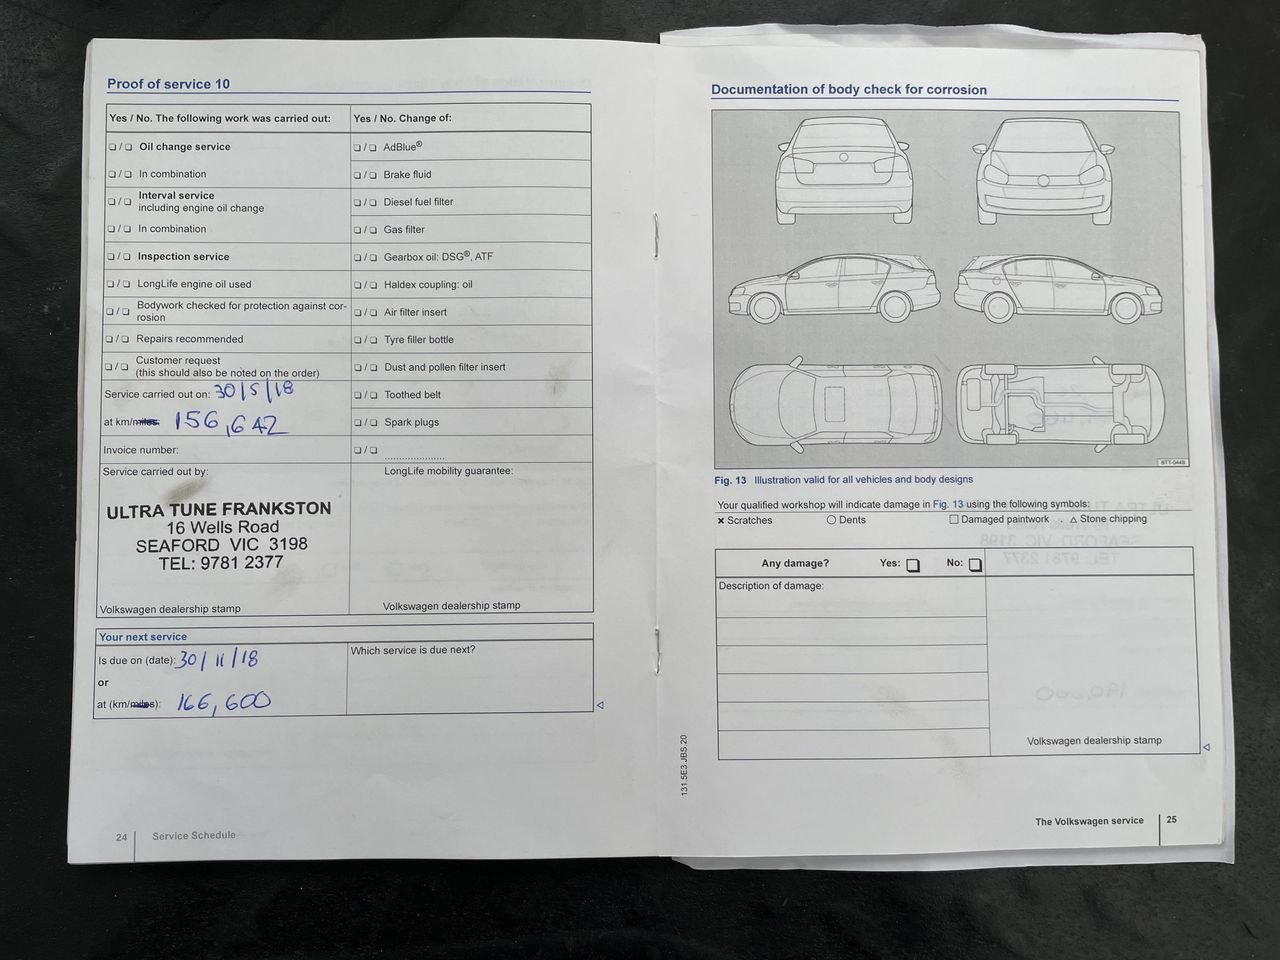 Proof of service 10
Yes / No. The following work was carried out:
❏ / ❏ Oil change service
❏ / ❏ In combination
❏ / ❏ Interval service
including engine oil change
❏ / ❏ In combination
❏ / ❏ Inspection service
❏ / ❏ LongLife engine oil used
❏ / ❏ Bodywork checked for protection against cor-
rosion
❏ / ❏ Repairs recommended
❏ / ❏ Customer request
(this should also be noted on the order)
Service carried out on: 30/5/18
at km/miles: 156,642
Invoice number:
Service carried out by:
ULTRA TUNE FRANKSTON
16 Wells Road
SEAFORD VIC 3198
TEL: 9781 2377
Volkswagen dealership stamp
Yes / No. Change of:
❏ / ❏ AdBlue®
❏ / ❏ Brake fluid
❏ / ❏ Diesel fuel filter
❏ / ❏ Gas filter
❏ / ❏ Gearbox oil: DSG®, ATF
❏ / ❏ Haldex coupling: oil
❏ / ❏ Air filter insert
❏ / ❏ Tyre filler bottle
❏ / ❏ Dust and pollen filter insert
❏ / ❏ Toothed belt
❏ / ❏ Spark plugs
❏ / ❏ .....................
LongLife mobility guarantee:
Volkswagen dealership stamp
Your next service
Is due on (date): 30/11/18
or
at (km/miles): 166,600
Which service is due next?
24 Service Schedule
Documentation of body check for corrosion
BTT-0448
Fig. 13 Illustration valid for all vehicles and body designs
Your qualified workshop will indicate damage in Fig. 13 using the following symbols:
× Scratches ○ Dents □ Damaged paintwork . △ Stone chipping
Any damage? Yes: ❏ No: ❏
Description of damage:
Volkswagen dealership stamp
131.5E3.JBS.20
The Volkswagen service 25